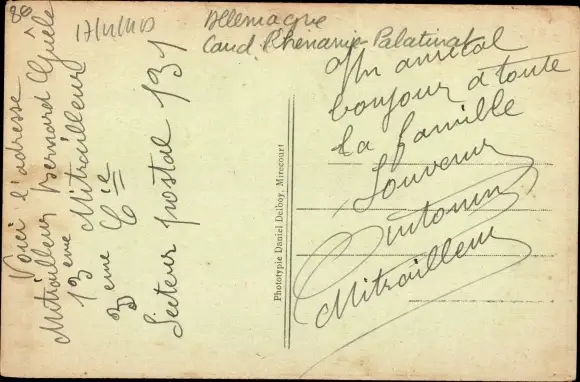 88
17/11/40
Allemagne
Land. Rhénanie-Palatinat
Voici l'adresse
Mitrailleur Bernard
13 eme Mitrailleur
3 eme Cie
Secteur postal 131
Un amical
bonjour a toute
la famille
Souvenir
Antonin
Mitrailleur
Phototypie Daniel Delboy, Mirecourt